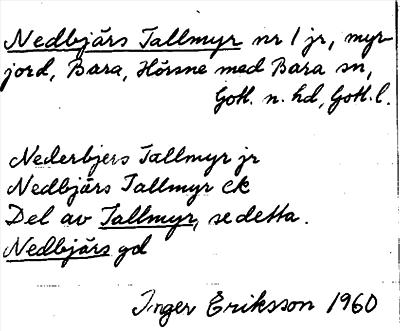 Nedbjärs Tallmyr nr 1 jr, myr-
jord, Bara, Hörsne med Bara sn,
Gotl. n. hd, Gotl. l.
Nederbjers Tallmyr jr
Nedbjärs Tallmyr ck
Del av Tallmyr, se detta.
Nedbjärs gd
Inger Eriksson 1960